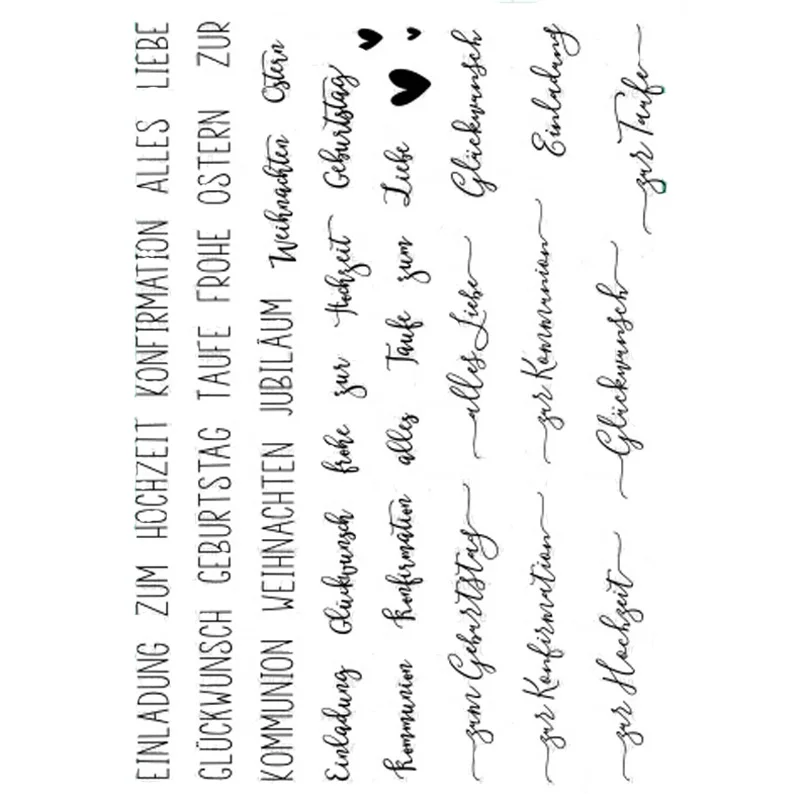 EINLADUNG ZUM HOCHZEIT KONFIRMATION ALLES LIEBE
GLÜCKWUNSCH GEBURTSTAG TAUFE FROHE OSTERN ZUR
KOMMUNION WEIHNACHTEN JUBILÄUM Weihnachten Ostern
Einladung Glückwunsch frohe zur Hochzeit Geburtstag
Kommunion Konfirmation alles Taufe zum Liebe
zum Geburtstag alles Liebe Glückwunsch
zur Konfirmation zur Kommunion Einladung
zur Hochzeit Glückwunsch zur Taufe